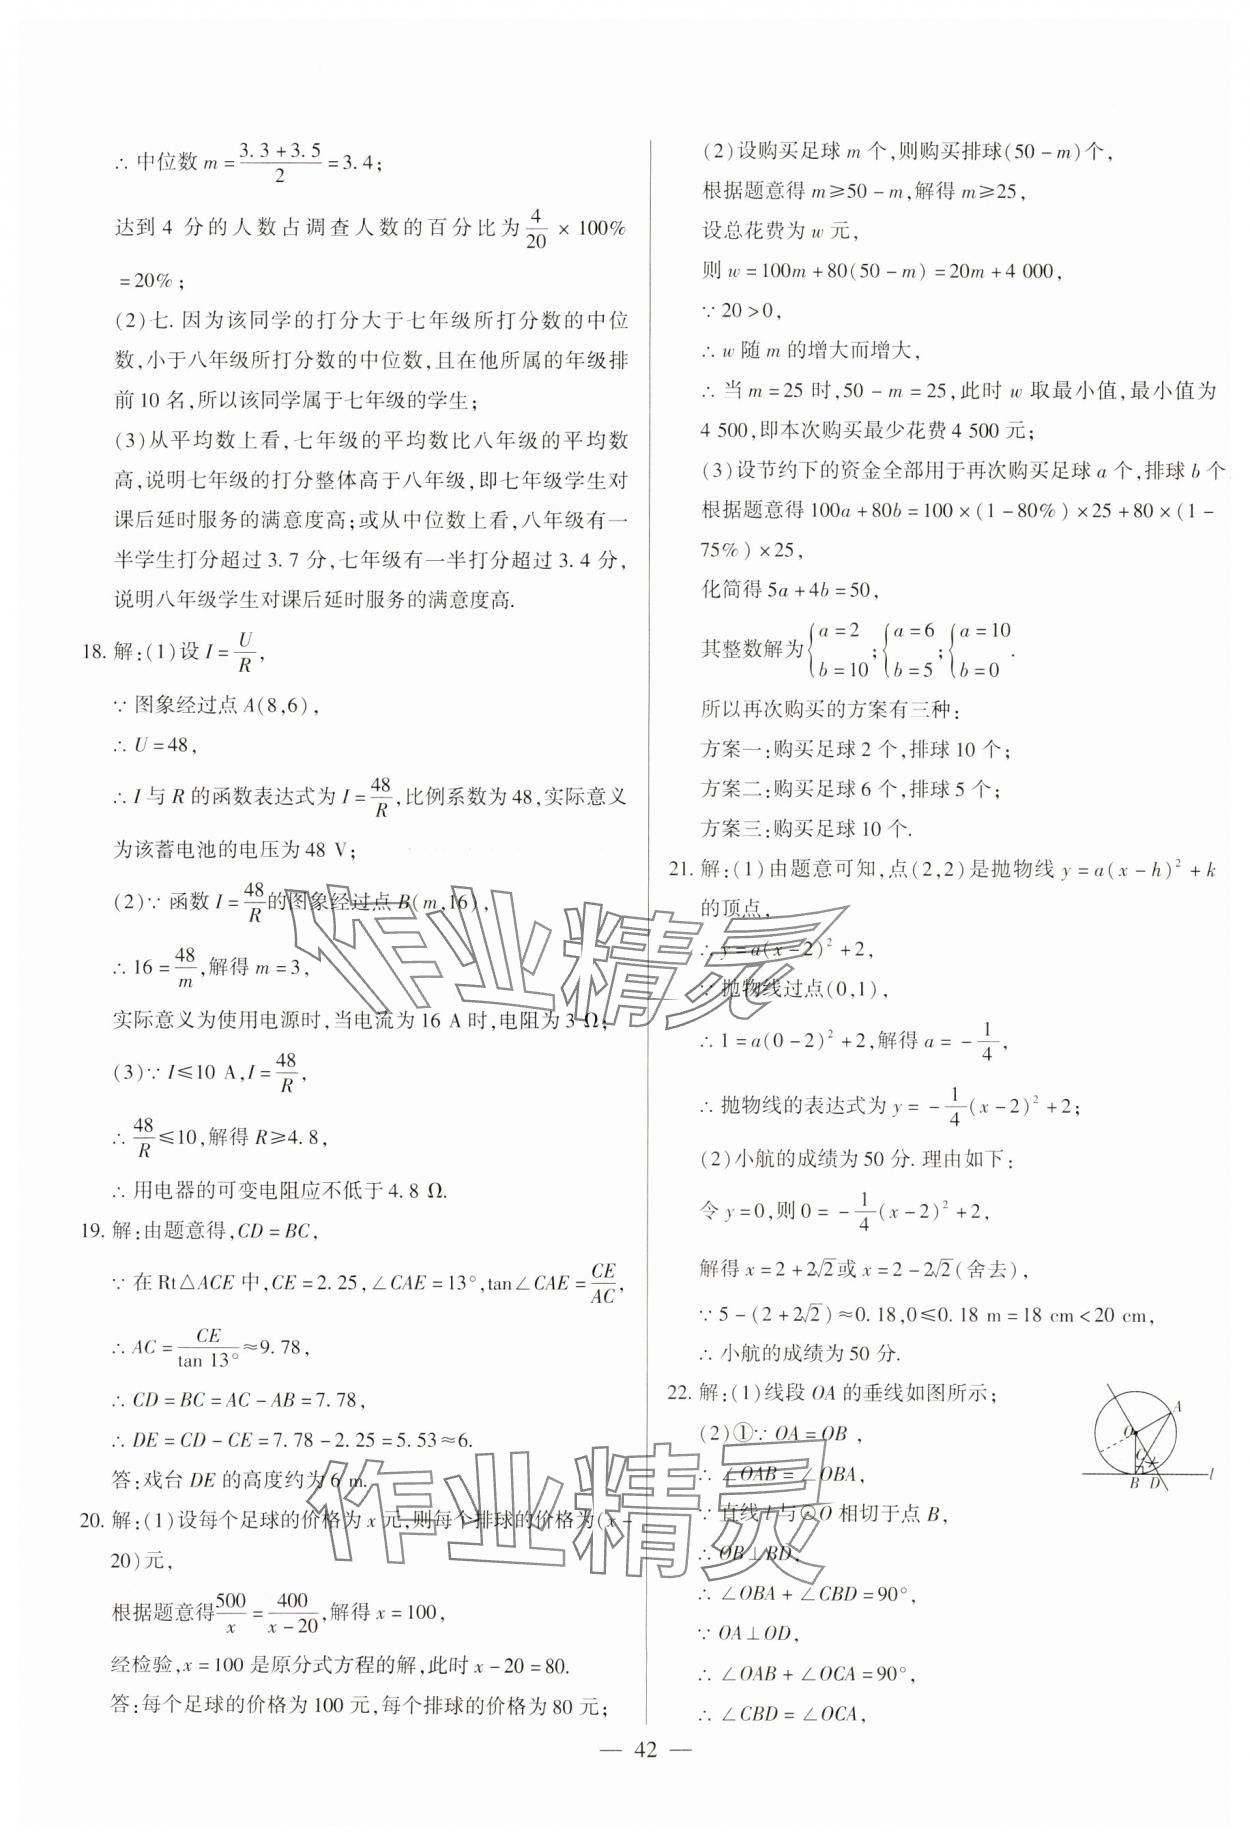 ∴ 中位数 m = (3.3+3.5)/2 = 3.4;
达到 4 分的人数占调查人数的百分比为 4/20 × 100%
=20%;
(2)七. 因为该同学的打分大于七年级所打分数的中位
数,小于八年级所打分数的中位数,且在他所属的年级排
前 10 名,所以该同学属于七年级的学生;
(3)从平均数上看,七年级的平均数比八年级的平均数
高,说明七年级的打分整体高于八年级,即七年级学生对
课后延时服务的满意度高;或从中位数上看,八年级有一
半学生打分超过 3.7 分,七年级有一半打分超过 3.4 分,
说明八年级学生对课后延时服务的满意度高.
18. 解:(1)设 I = U/R,
∵ 图象经过点 A(8,6),
∴ U = 48,
∴ I 与 R 的函数表达式为 I = 48/R,比例系数为 48,实际意义
为该蓄电池的电压为 48 V;
(2)∵ 函数 I = 48/R 的图象经过点 B(m,16),
∴ 16 = 48/m,解得 m = 3,
实际意义为使用电源时,当电流为 16 A 时,电阻为 3 Ω;
(3)∵ I≤10 A,I = 48/R,
∴ 48/R ≤10,解得 R≥4.8,
∴ 用电器的可变电阻应不低于 4.8 Ω.
19. 解:由题意得,CD = BC,
∵ 在 Rt△ACE 中,CE = 2.25,∠CAE = 13°,tan∠CAE = CE/AC,
∴ AC = CE/tan 13° ≈9.78,
∴ CD = BC = AC - AB = 7.78,
∴ DE = CD - CE = 7.78 - 2.25 = 5.53≈6.
答:戏台 DE 的高度约为 6 m.
20. 解:(1)设每个足球的价格为 x 元,则每个排球的价格为(x -
20)元,
根据题意得 500/x = 400/(x-20),解得 x = 100,
经检验,x = 100 是原分式方程的解,此时 x - 20 = 80.
答:每个足球的价格为 100 元,每个排球的价格为 80 元;
(2)设购买足球 m 个,则购买排球(50 - m)个,
根据题意得 m≥50 - m,解得 m≥25,
设总花费为 w 元,
则 w = 100m + 80(50 - m) = 20m + 4 000,
∵ 20 >0,
∴ w 随 m 的增大而增大,
∴ 当 m = 25 时,50 - m = 25,此时 w 取最小值,最小值为
4 500,即本次购买最少花费 4 500 元;
(3)设节约下的资金全部用于再次购买足球 a 个,排球 b 个
根据题意得 100a + 80b = 100 × (1 - 80%) × 25 + 80 × (1 -
75%) × 25,
化简得 5a + 4b = 50,
其整数解为 {a = 2 b = 10; {a = 6 b = 5; {a = 10 b = 0.
所以再次购买的方案有三种:
方案一:购买足球 2 个,排球 10 个;
方案二:购买足球 6 个,排球 5 个;
方案三:购买足球 10 个.
21. 解:(1)由题意可知,点(2,2)是抛物线 y = a(x - h)² + k
的顶点,
∴ y = a(x - 2)² + 2,
∵ 抛物线过点(0,1),
∴ 1 = a(0 - 2)² + 2,解得 a = -1/4,
∴ 抛物线的表达式为 y = -1/4(x - 2)² + 2;
(2)小航的成绩为 50 分. 理由如下:
令 y = 0,则 0 = -1/4(x - 2)² + 2,
解得 x = 2 + 2√2或 x = 2 - 2√2(舍去),
∵ 5 - (2 + 2√2)≈0.18,0≤0.18 m = 18 cm < 20 cm,
∴ 小航的成绩为 50 分.
22. 解:(1)线段 OA 的垂线如图所示;
(2)①∵ OA = OB ,
∴ ∠OAB = ∠OBA,
∵ 直线 l 与⊙O 相切于点 B,
∴ OB⊥BD,
∴ ∠OBA + ∠CBD = 90°,
∵ OA⊥OD,
∴ ∠OAB + ∠OCA = 90°,
∴ ∠CBD = ∠OCA,
A
O
C
B D
l
作业精灵
作业精灵
— 42 —